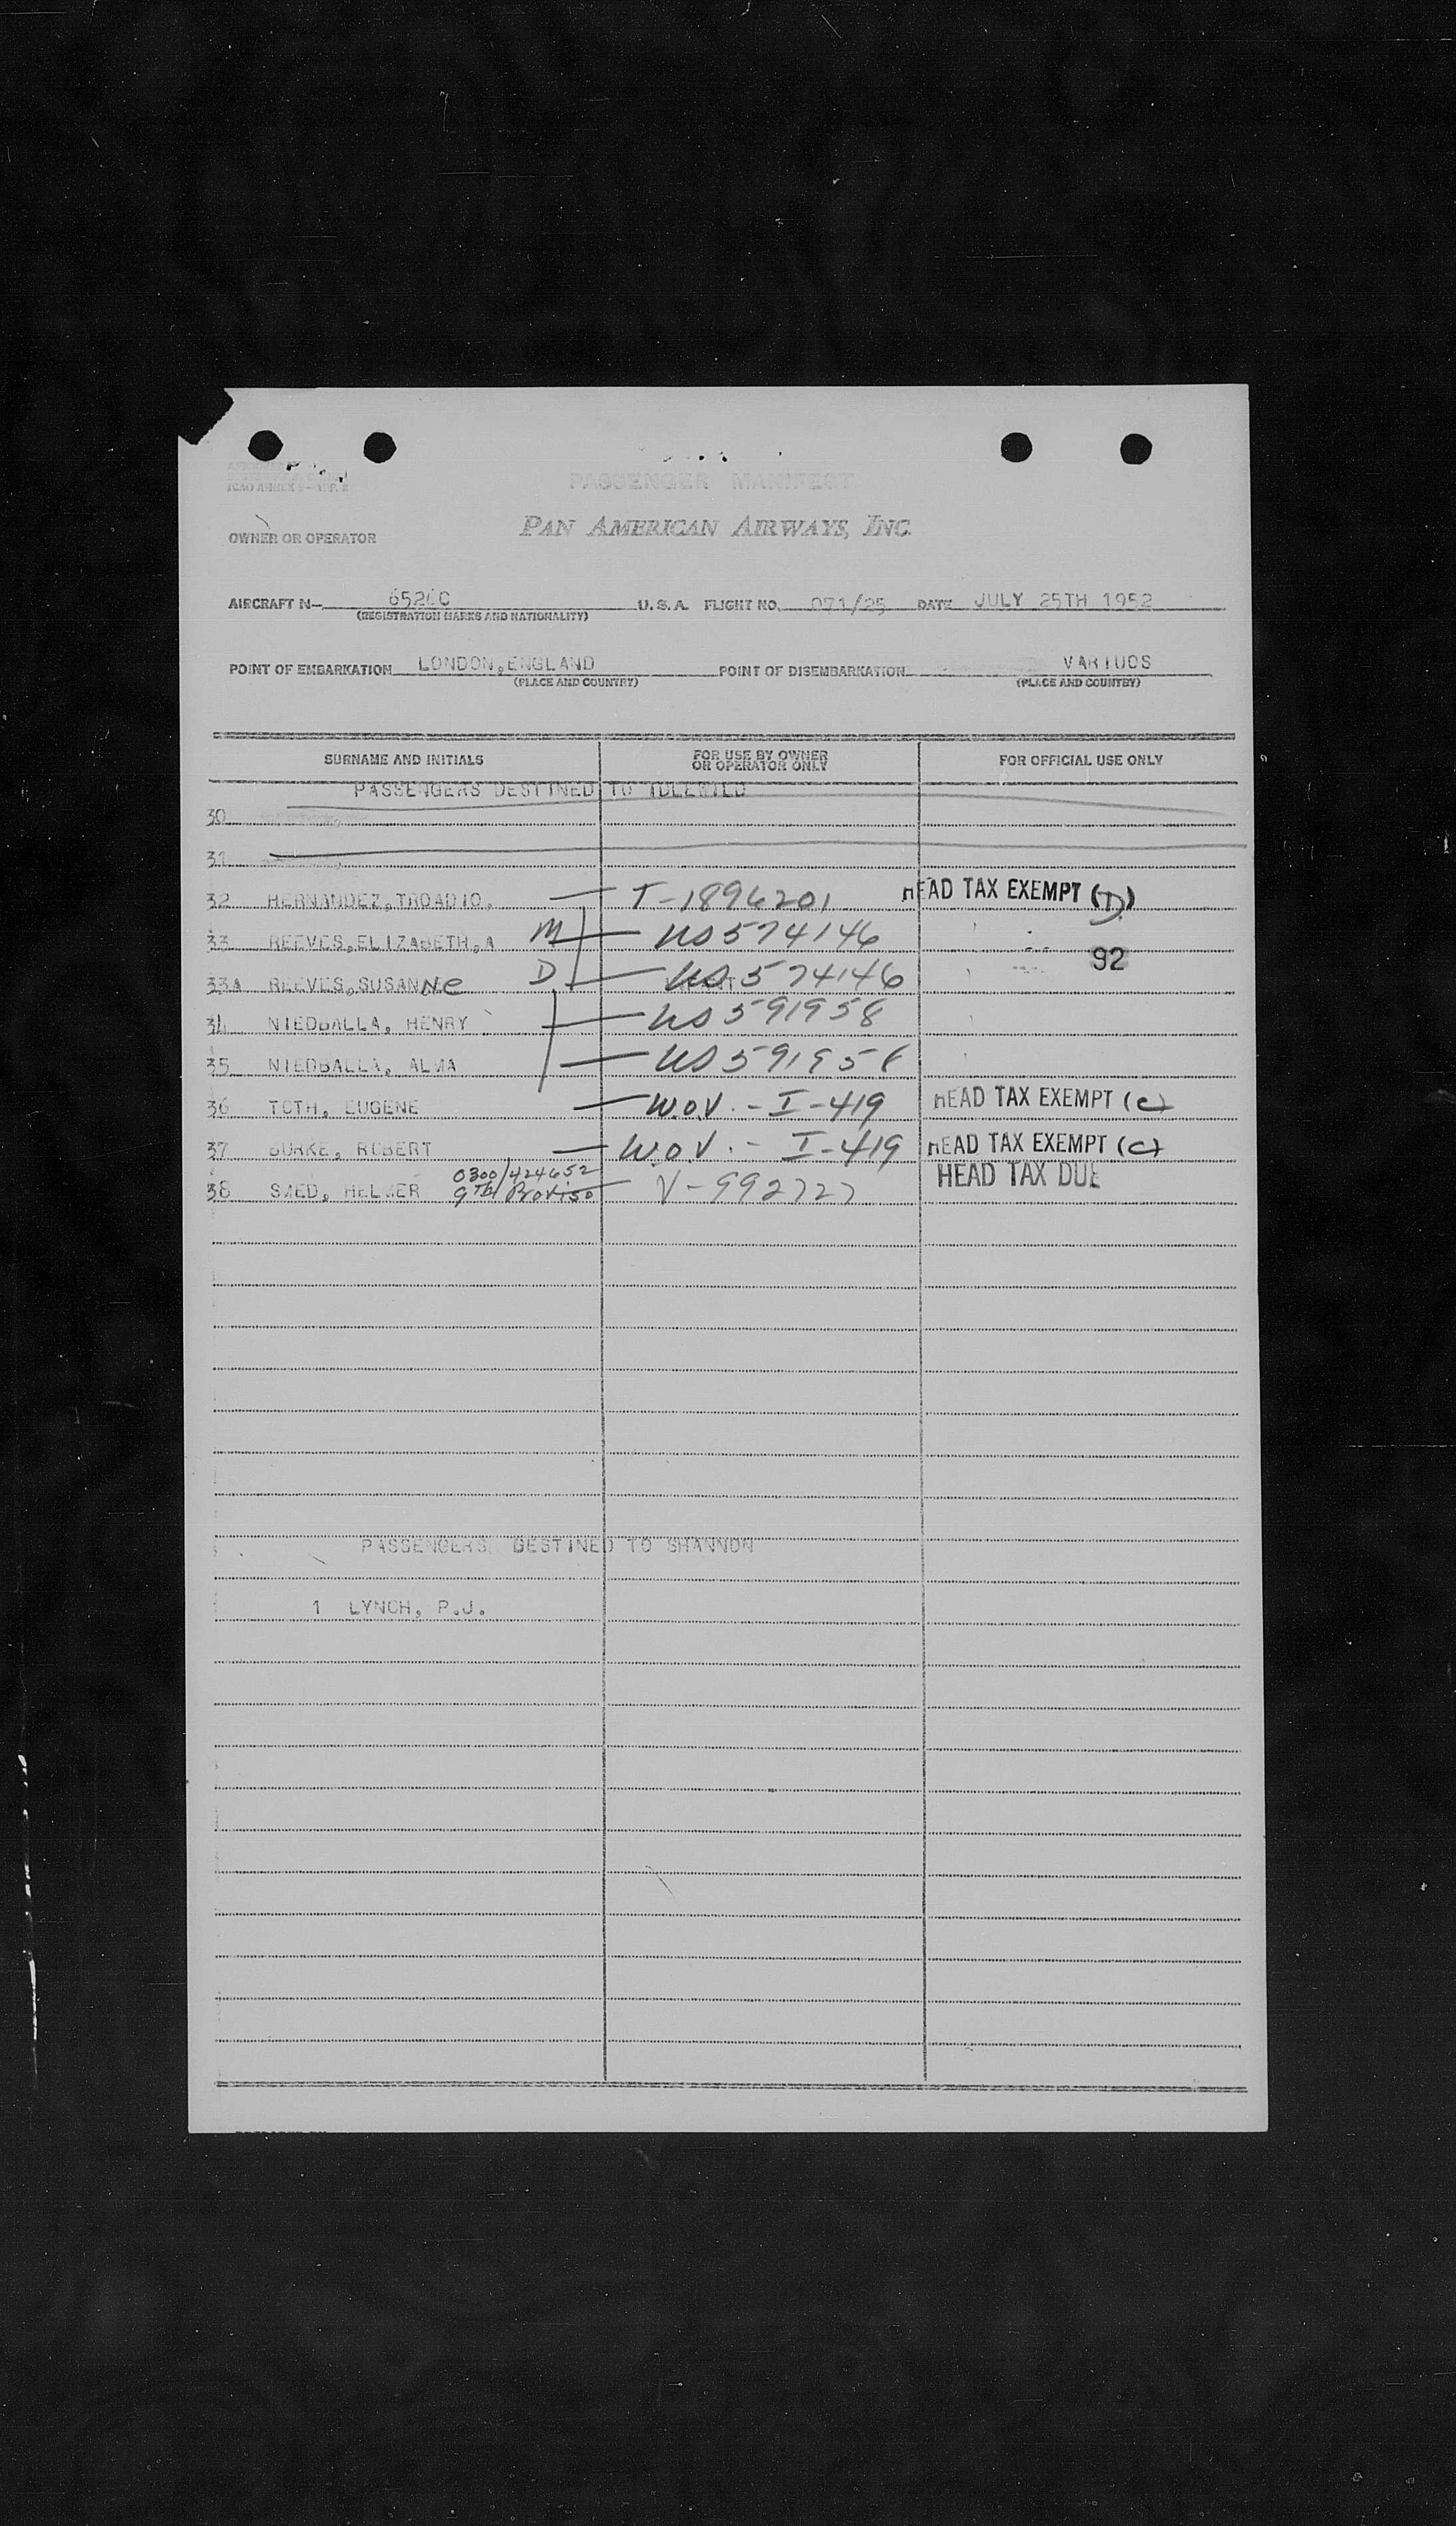 ICAO ANNEX 9—APP. 2
PASSENGER MANIFEST
OWNER OR OPERATOR PAN AMERICAN AIRWAYS, INC.
AIRCRAFT N— U. S. A. FLIGHT NO. 071/25 DATE JULY 25TH 1952
(REGISTRATION MARKS AND NATIONALITY)
POINT OF EMBARKATION LONDON,ENGLAND POINT OF DISEMBARKATION VARIUOS
(PLACE AND COUNTRY) (PLACE AND COUNTRY)
SURNAME AND INITIALS FOR USE BY OWNER OR OPERATOR ONLY FOR OFFICIAL USE ONLY
PASSENGERS DESTINED TO IDLEWILD
30
31
32 HERNANDEZ,TROADIO. T-1896201 HEAD TAX EXEMPT (D)
33 REEVES,ELIZABETH,A M US 574146
92
33A REEVES,SUSANNe D US 574146
34 NIEDBALLA, HENRY US 591958
35 NIEDBALLA, ALMA US 591958
36 TOTH, EUGENE W.O.V. - I-419 HEAD TAX EXEMPT (C)
37 BURKE, ROBERT W.O.V. - I-419 HEAD TAX EXEMPT (C)
0300/424652 HEAD TAX DUE
38 SMED, HELMER 9TH Proviso V-992727
PASSENGERS DESTINED TO SHANNON
1 LYNCH, P.J.